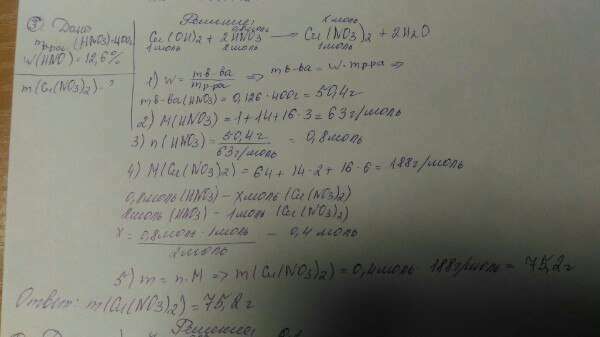 ③ Дано:
mр-ра(HNO3)=400г
W(HNO3)=12,6%
m(Cu(NO3)2)-?
Решение:
0,8моль x моль
Cu(OH)2 + 2HNO3 → Cu(NO3)2 + 2H2O
1моль 2моль 1моль
1) W = mв-ва/mр-ра => mв-ва = W·mр-ра =>
mв-ва(HNO3) = 0,126·400г = 50,4г
2) M(HNO3) = 1+14+16·3 = 63г/моль
3) n(HNO3) = 50,4г/63г/моль = 0,8моль
4) M(Cu(NO3)2) = 64 + 14·2 + 16·6 = 188г/моль
0,8моль(HNO3) – xмоль(Cu(NO3)2)
2моль(HNO3) – 1моль(Cu(NO3)2)
x = 0,8моль·1моль/2моль – 0,4моль
5) m = n·M => m(Cu(NO3)2) = 0,4моль 188г/моль = 75,2г
Ответ: m(Cu(NO3)2) = 75,2г
Решение: